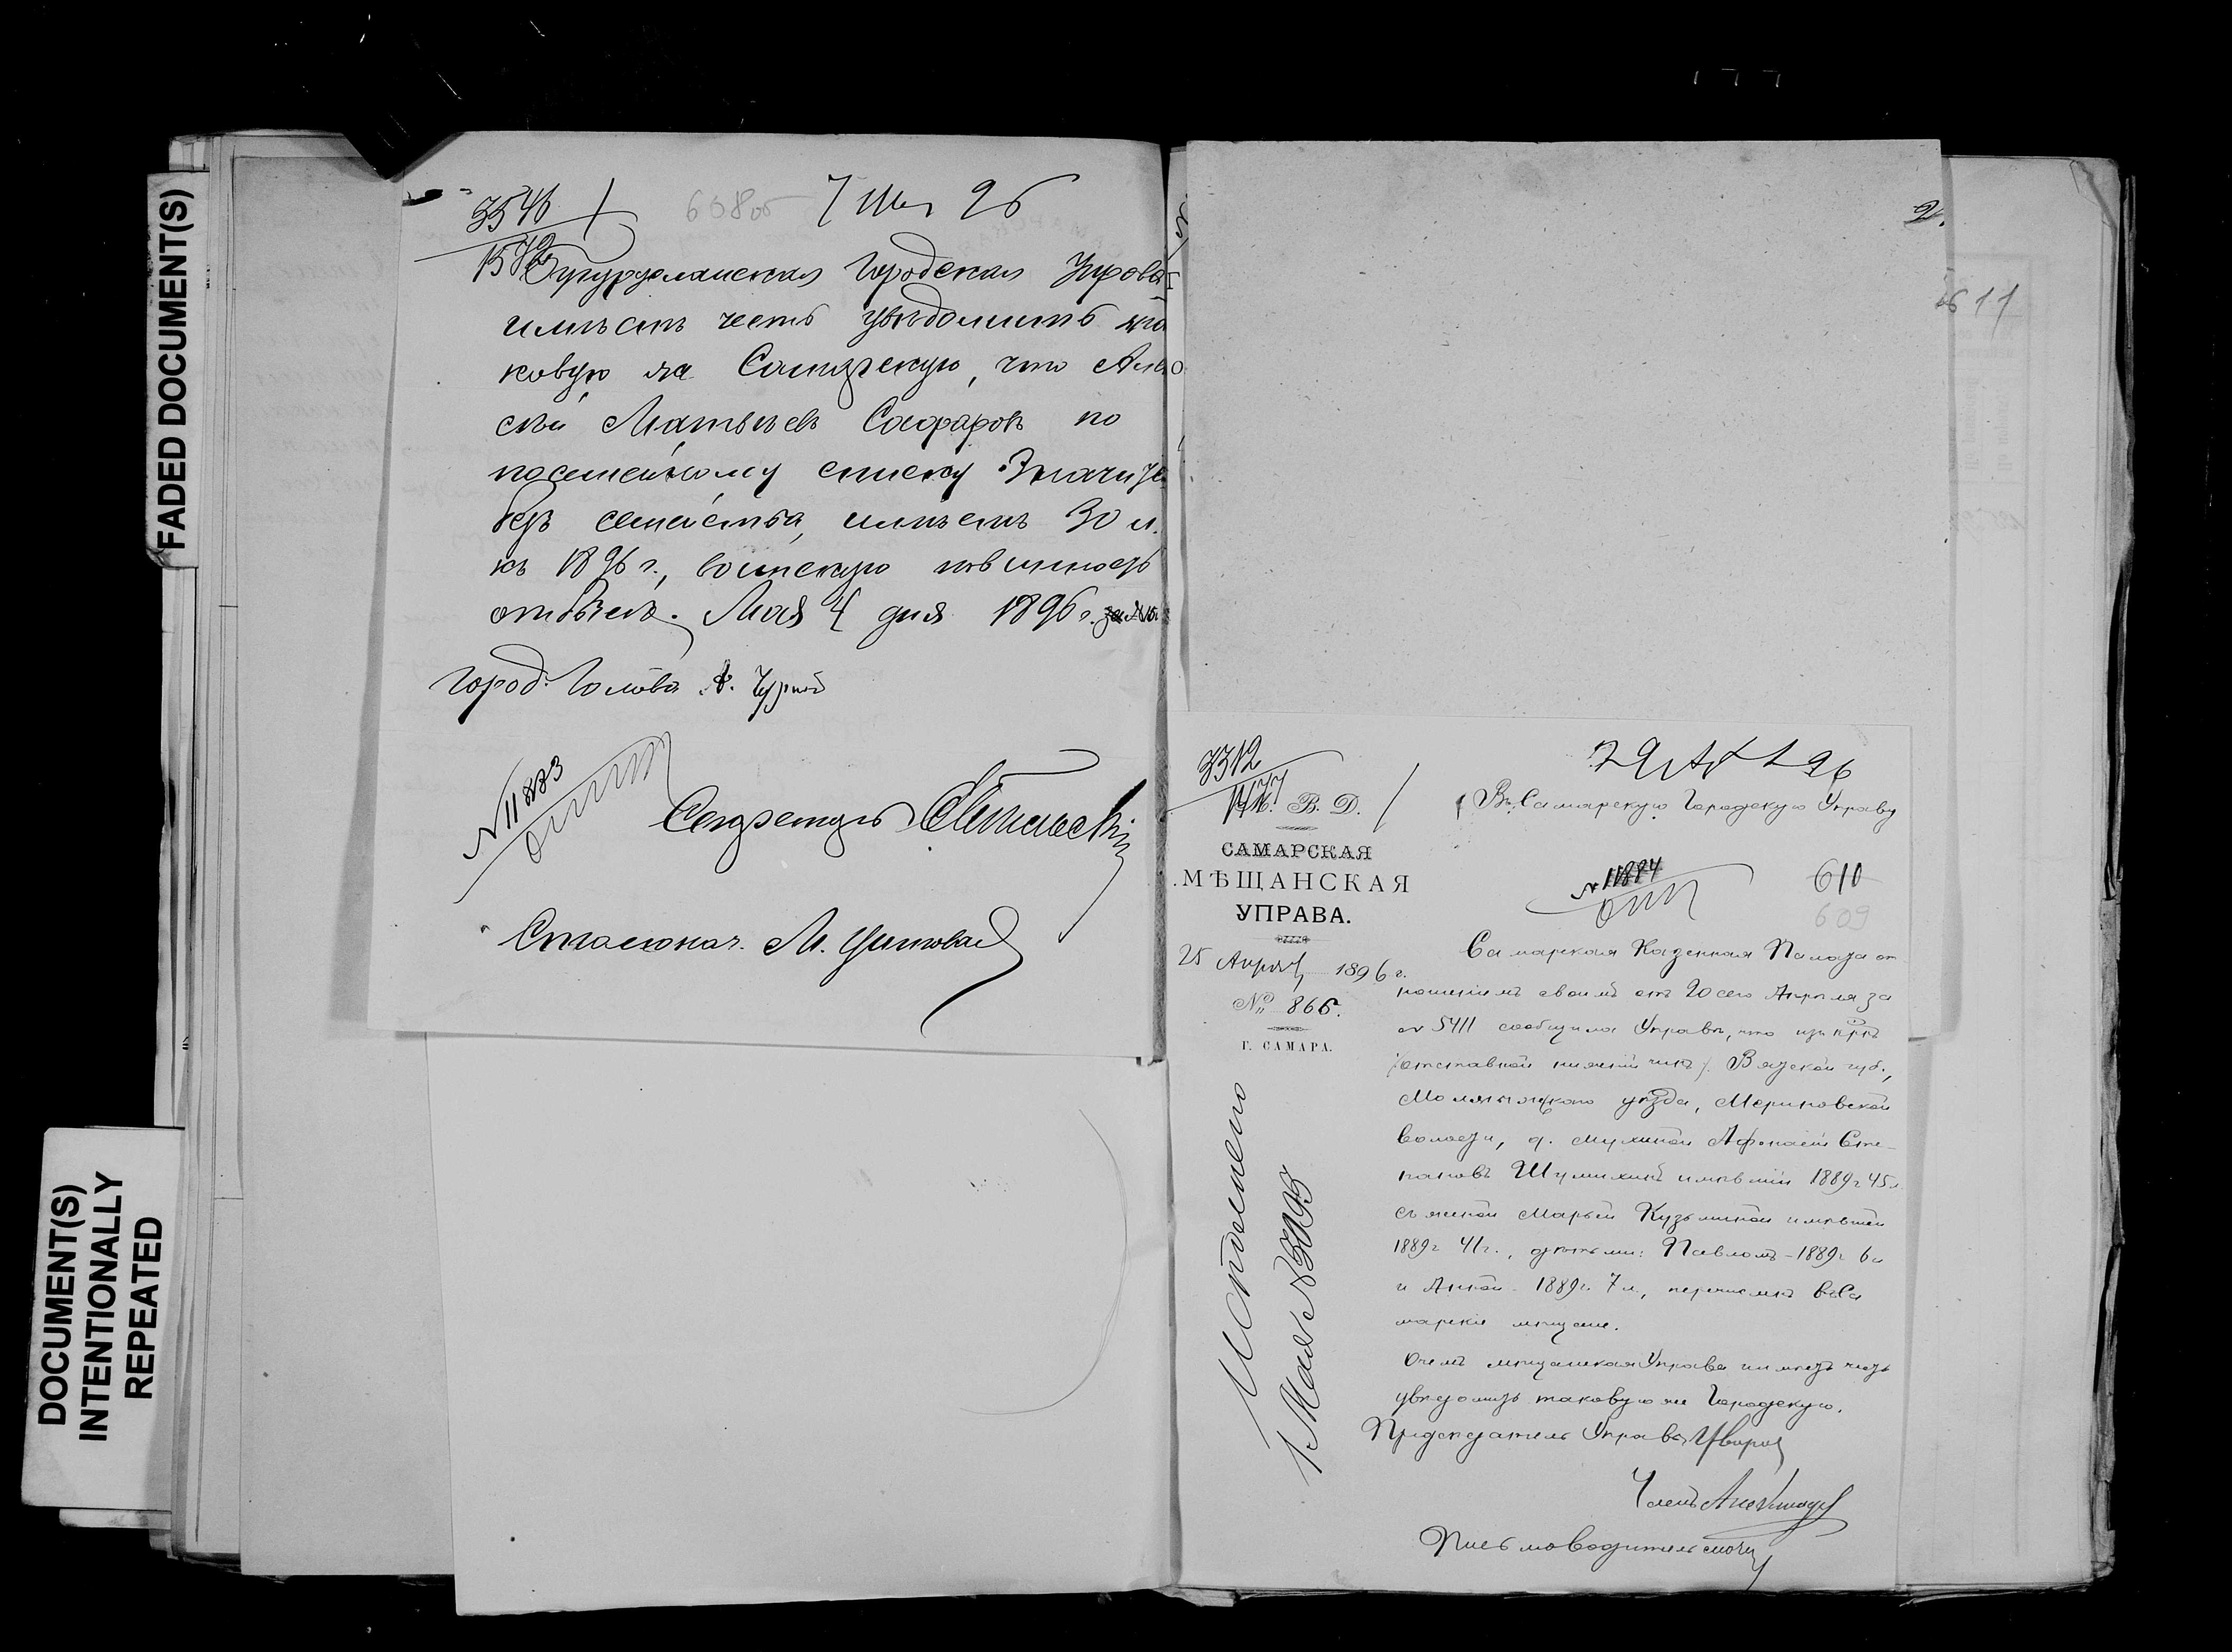 FADED DOCUMENT(S)
DOCUMENT(S)
INTENTIONALLY
REPEATED
3546
608об 7 Мая 96
Бугурусланская Городская Управа
имѣетъ честь увѣдомить та
ковую же Самарскую, что Алек
сѣй Матвѣевъ Сафаровъ по
посемейному списку значится
безъ семейства, имѣетъ 30 л.
къ 1896 г., воинскую повинность
отбылъ. Мая 4 дня 1896 г.
Город. Голова
N 11883
Секретарь
Столонач. М.
2
611
3312
29 Апр 96
М. В. Д.
Въ Самарскую Городскую Управу
САМАРСКАЯ
МѢЩАНСКАЯ
УПРАВА.
N 11884
610
609
25 Апрѣля 1896 г.
№ 866.
Г. САМАРА.
Самарская Казенная Палата от
ношеніемъ своимъ отъ 20 сего Апрѣля за
№ 5411 сообщила Управѣ, что изъ крѣ
/отставной нижній чинъ/ Вятской губ.,
уѣзда, Мериновской
волости, д. Мухиной Афонасій Сте-
пановъ Шумихинъ имѣвшій 1889 г 45 л
съ женой Марьей Кузьминой имѣвшей
1889 г 41 г., дѣтьми: Павломъ - 1889 г 6 л
и Анной - 1889 г. 7 л, перечисленъ въ Са
марскіе мѣщане.
О чемъ мѣщанская Управа имѣетъ честь
увѣдомить таковую же Городскую.
Предсѣдатель Управы
Членъ
Письмоводитель
Исполнено
1 Мая № 5095